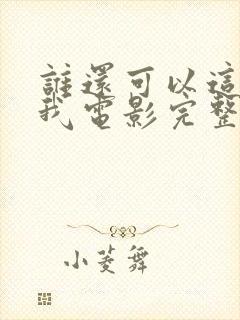 誰還可以這
我電影完整
小菱舞